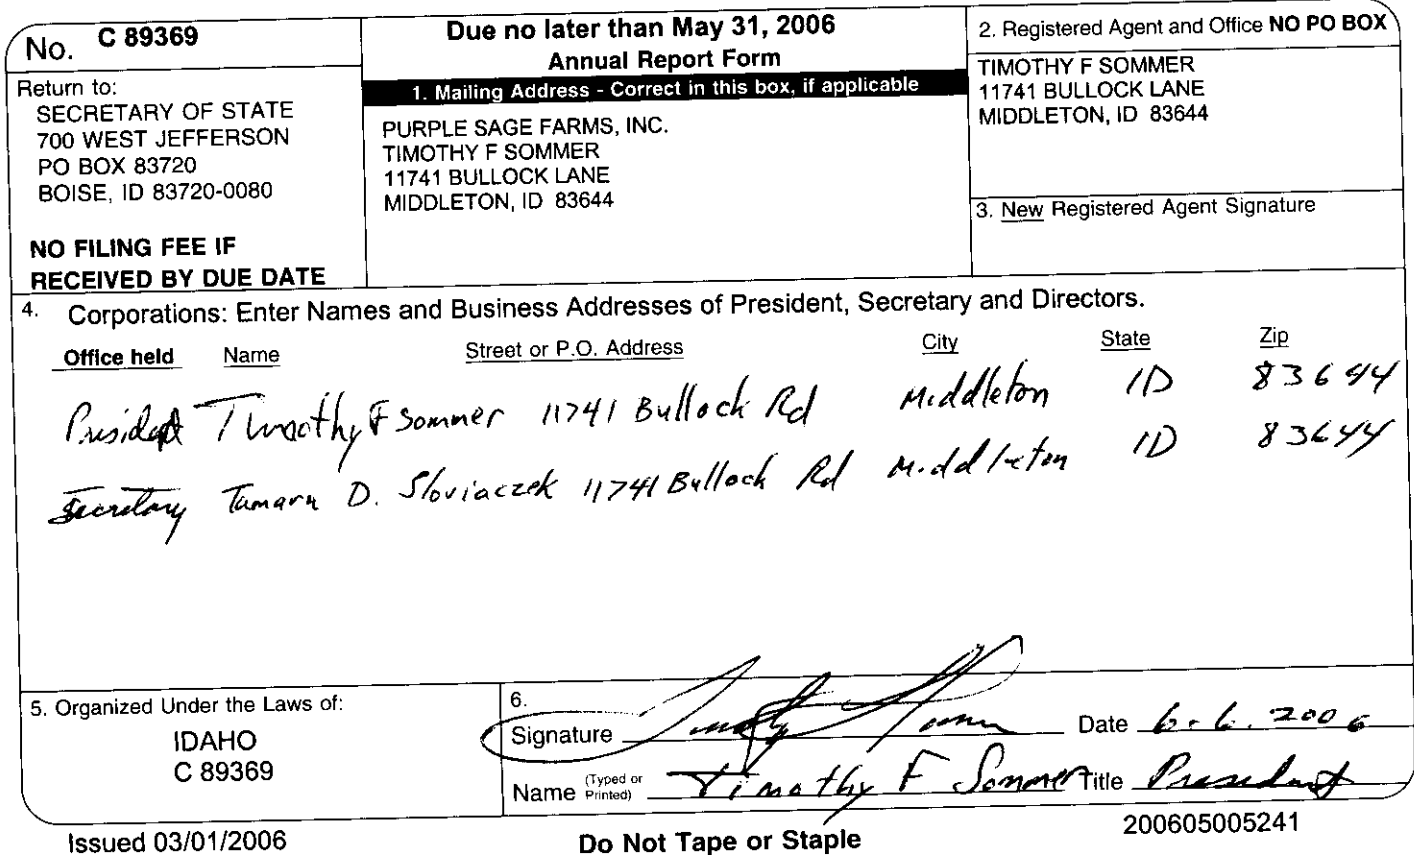 No. C 89369
Return to:
SECRETARY OF STATE
700 WEST JEFFERSON
PO BOX 83720
BOISE, ID 83720-0080
NO FILING FEE IF
RECEIVED BY DUE DATE
Due no later than May 31, 2006
Annual Report Form
1. Mailing Address - Correct in this box, if applicable
PURPLE SAGE FARMS, INC.
TIMOTHY F SOMMER
11741 BULLOCK LANE
MIDDLETON, ID 83644
2. Registered Agent and Office NO PO BOX
TIMOTHY F SOMMER
11741 BULLOCK LANE
MIDDLETON, ID 83644
3. New Registered Agent Signature
4. Corporations: Enter Names and Business Addresses of President, Secretary and Directors.
Office held Name Street or P.O. Address City State Zip
President Timothy F Sommer 11741 Bullock Rd Middleton ID 83644
Secretary Tamara D. Sloviaczek 11741 Bullock Rd Middleton ID 83644
5. Organized Under the Laws of:
IDAHO
C 89369
6.
Signature Timothy Sommer Date 6.6.2006
Name (Typed or Printed) Timothy F Sommer Title President
Issued 03/01/2006
Do Not Tape or Staple
200605005241